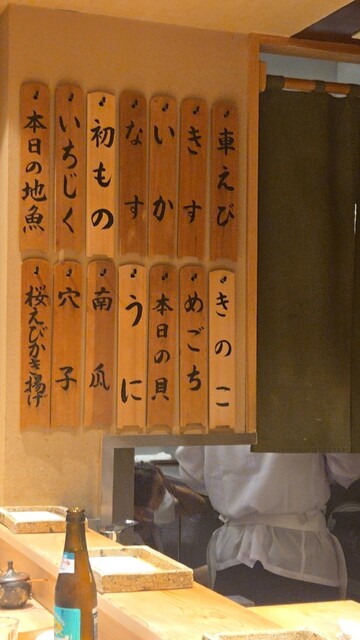 車えび
きす
いか
なす
初もの
いちじく
本日の地魚
きのこ
めごち
本日の貝
うに
南瓜
穴子
桜えびかき揚げ